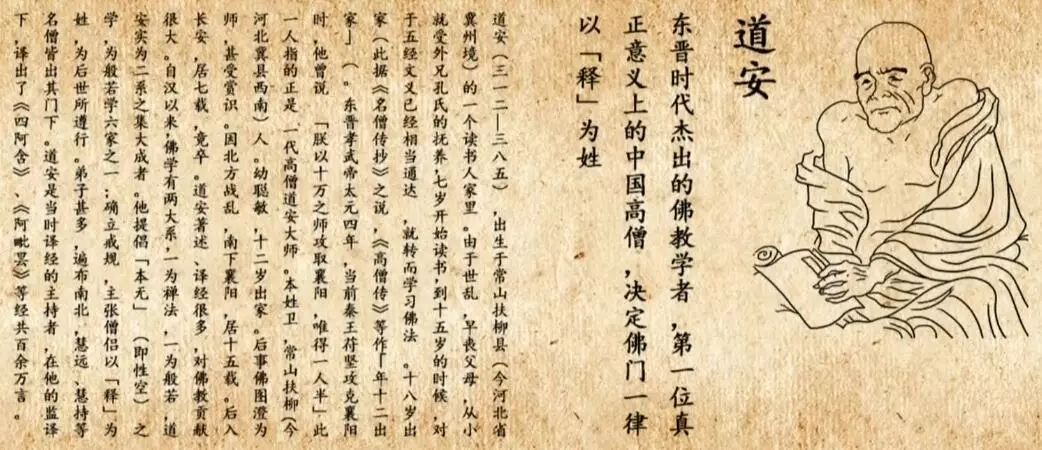 道安
东晋时代杰出的佛教学者，第一位真
正意义上的中国高僧，决定佛门一律
以「释」为姓
道安（三一二—三八五），出生于常山扶柳县（今河北省
冀州境）的一个读书人家里。由于世乱，早丧父母，从小
就受外兄孔氏的抚养，七岁开始读书，到十五岁的时候，对
于五经文义已经相当通达，就转而学习佛法。十八岁出
家（此据《名僧传抄》之说，《高僧传》等作「年十二出
家」）。东晋孝武帝太元四年，当前秦王苻坚攻克襄阳
时，他曾说「朕以十万之师攻取襄阳，唯得一人半」此
一人指的正是一代高僧道安大师。本姓卫，常山扶柳（今
河北冀县西南）人。幼聪敏，十二岁出家。后事佛图澄为
师，甚受赏识。因北方战乱，南下襄阳，居十五载。后入
长安，居七载，竟卒。道安著述、译经很多，对佛教贡献
很大。自汉以来佛学有两大系，一为禅法，一为般若，道
安实为二系之集大成者。他提倡「本无」（即性空）之
学，为般若学六家之一；确立戒规，主张僧侣以「释」为
姓，为后世所遵行。弟子甚多，遍布南北，慧远、慧持等
名僧皆出其门下。道安是当时译经的主持者，在他的监译
下，译出了《四阿含》、《阿毗昙》等经共百余万言。